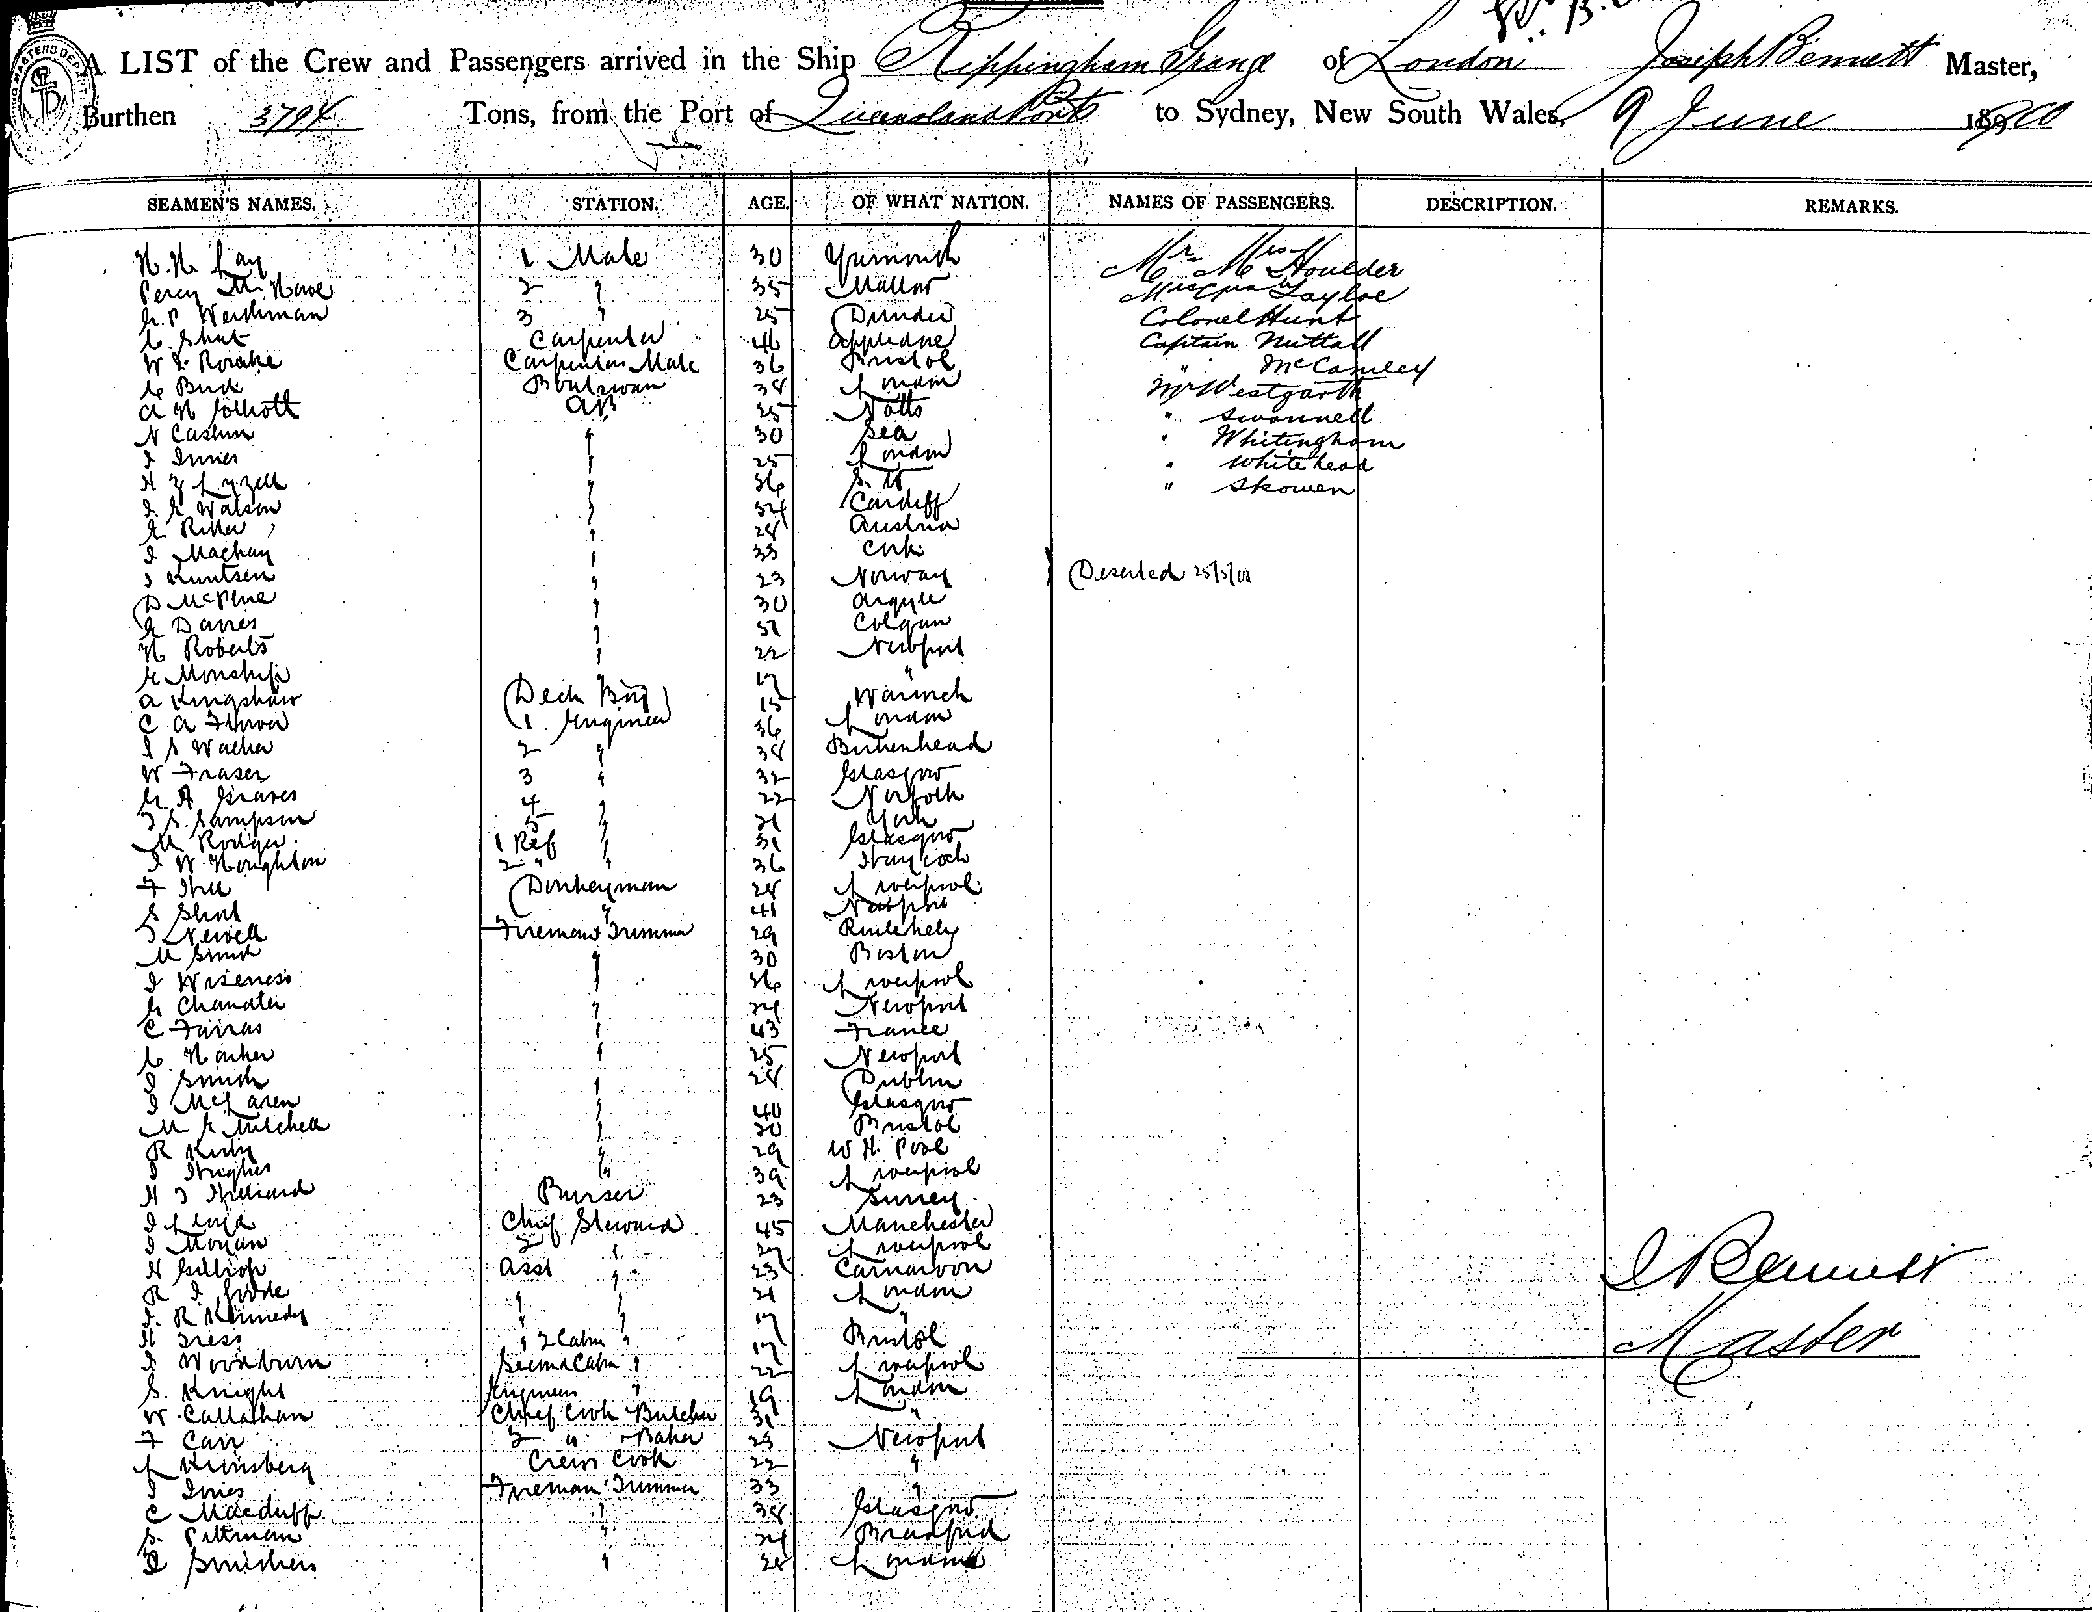 A LIST of the Crew and Passengers arrived in the Ship Rippingham Grange of London Joseph Bennett Master,
Burthen 3794 Tons, from the Port of Queensland Ports to Sydney, New South Wales, 9 June 1900
SEAMEN'S NAMES. STATION. AGE. OF WHAT NATION. NAMES OF PASSENGERS. DESCRIPTION. REMARKS.
1 Mate 30 Yarmouth Mr Mrs Houlder
Percy 2 " 35 Mallow Taylor
3 " 25 Dundee Colonel Hunt
Carpenter 46 Appledore Captain Nuttall
W Rourke Carpenters Mate 36 Bristol " McCamley
Bird Boatswain 38 London Mr Westgarth
AB 25 Notts " Swannell
N Cashin " 30 Sea " Whitingham
J Innes " 25 London " Whitehead
" 36 " Skowen
J. G Watson " Cardiff
G Ritter " 28 Austria
J Mackay " 33 Cork
J Knutsen " 23 Norway Deserted 25/5/00
D McPhie " 30 Argyle
G Davies " 31
H Roberts " 22 Newport
" 17 "
A Kingshaw Deck Boy 15 Warwick
C A 1 Engineer 36 London
J S Walker 2 " 38 Birkenhead
W Fraser 3 " 32 Glasgow
G A Graves 4 " 22 Norfolk
J S. Sampson 5 " 21 York
M Rodger 1 Ref " 31 Glasgow
J W Houghton 2 " " 36 Haydock
F Hill Donkeyman 28 Liverpool
S Short " 41 Newport
J Newell Fireman & Trimmer 29
M Smith " 30 Boston
J Wiseness " 36 Liverpool
G Chandler " 24 Newport
C " 43 France
G Harker " 25 Newport
J Smith " 28 Dublin
J McLaren " 40 Glasgow
M G Mitchell " 30 Bristol
R Kirby " 29 W H. Pool
J Hughes " 39 Liverpool
H J Hilliard Purser 23 Surrey
J Lloyd Chief Steward 45 Manchester
J Moran 2 " 27 Liverpool
H Asst " 23 Carnarvon
R J Goode " " 21 London
J. R Kennedy " " 17 "
H Tress " 2 Cabin " 17 Bristol
J Woodburn Second Cabin " 22 Liverpool
S. Knight Engineers " 19 London
W. Callaghan Chief Cook & Butcher 31 "
F Carr 2 " & Baker 23 Newport
L Kunsberg Crews Cook 22 "
J Fireman & Trimmer 33 "
C Macduff " 38 Glasgow
S. Pittman " 24 Bradford
J Smithers " 28 London
J Bennett
Master